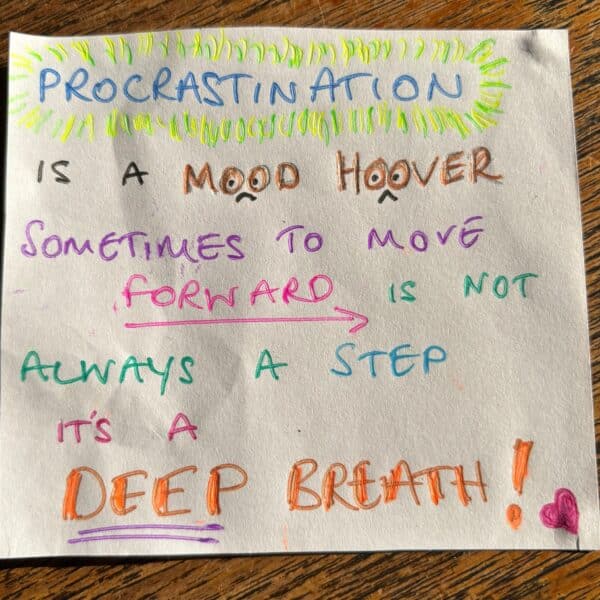 PROCRASTINATION
IS A MOOD HOOVER
SOMETIMES TO MOVE
FORWARD IS NOT
ALWAYS A STEP
IT'S A
DEEP BREATH!